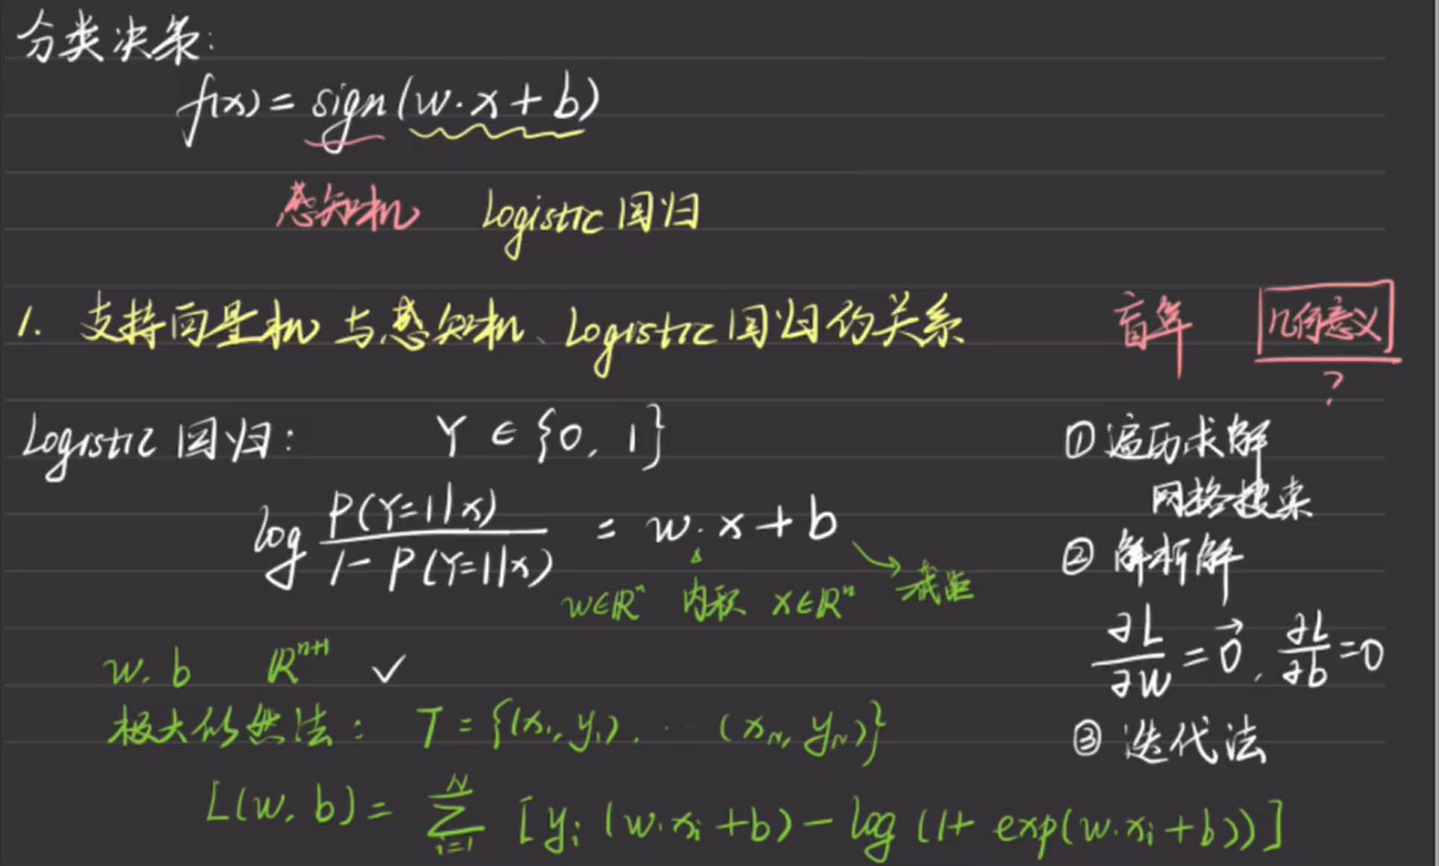 分类决策:
f(x) = sign(w·x+b)
感知机 Logistic回归
1. 支持向量机与感知机、Logistic回归的关系
盲算 几何意义
?
Logistic回归: Y ∈ {0, 1}
log P(Y=1|x) / 1-P(Y=1|x) = w·x+b
w∈ℝⁿ 内积 x∈ℝⁿ 截距
w, b ℝⁿ⁺¹ ✓
极大似然法: T = {(x₁, y₁), ... (x_N, y_N)}
L(w, b) = ∑_{i=1}^{N} [y_i (w·x_i+b) - log(1+ exp(w·x_i+b))]
① 遍历求解
网格搜索
② 解析解
∂L/∂w = 0⃗, ∂L/∂b = 0
③ 迭代法